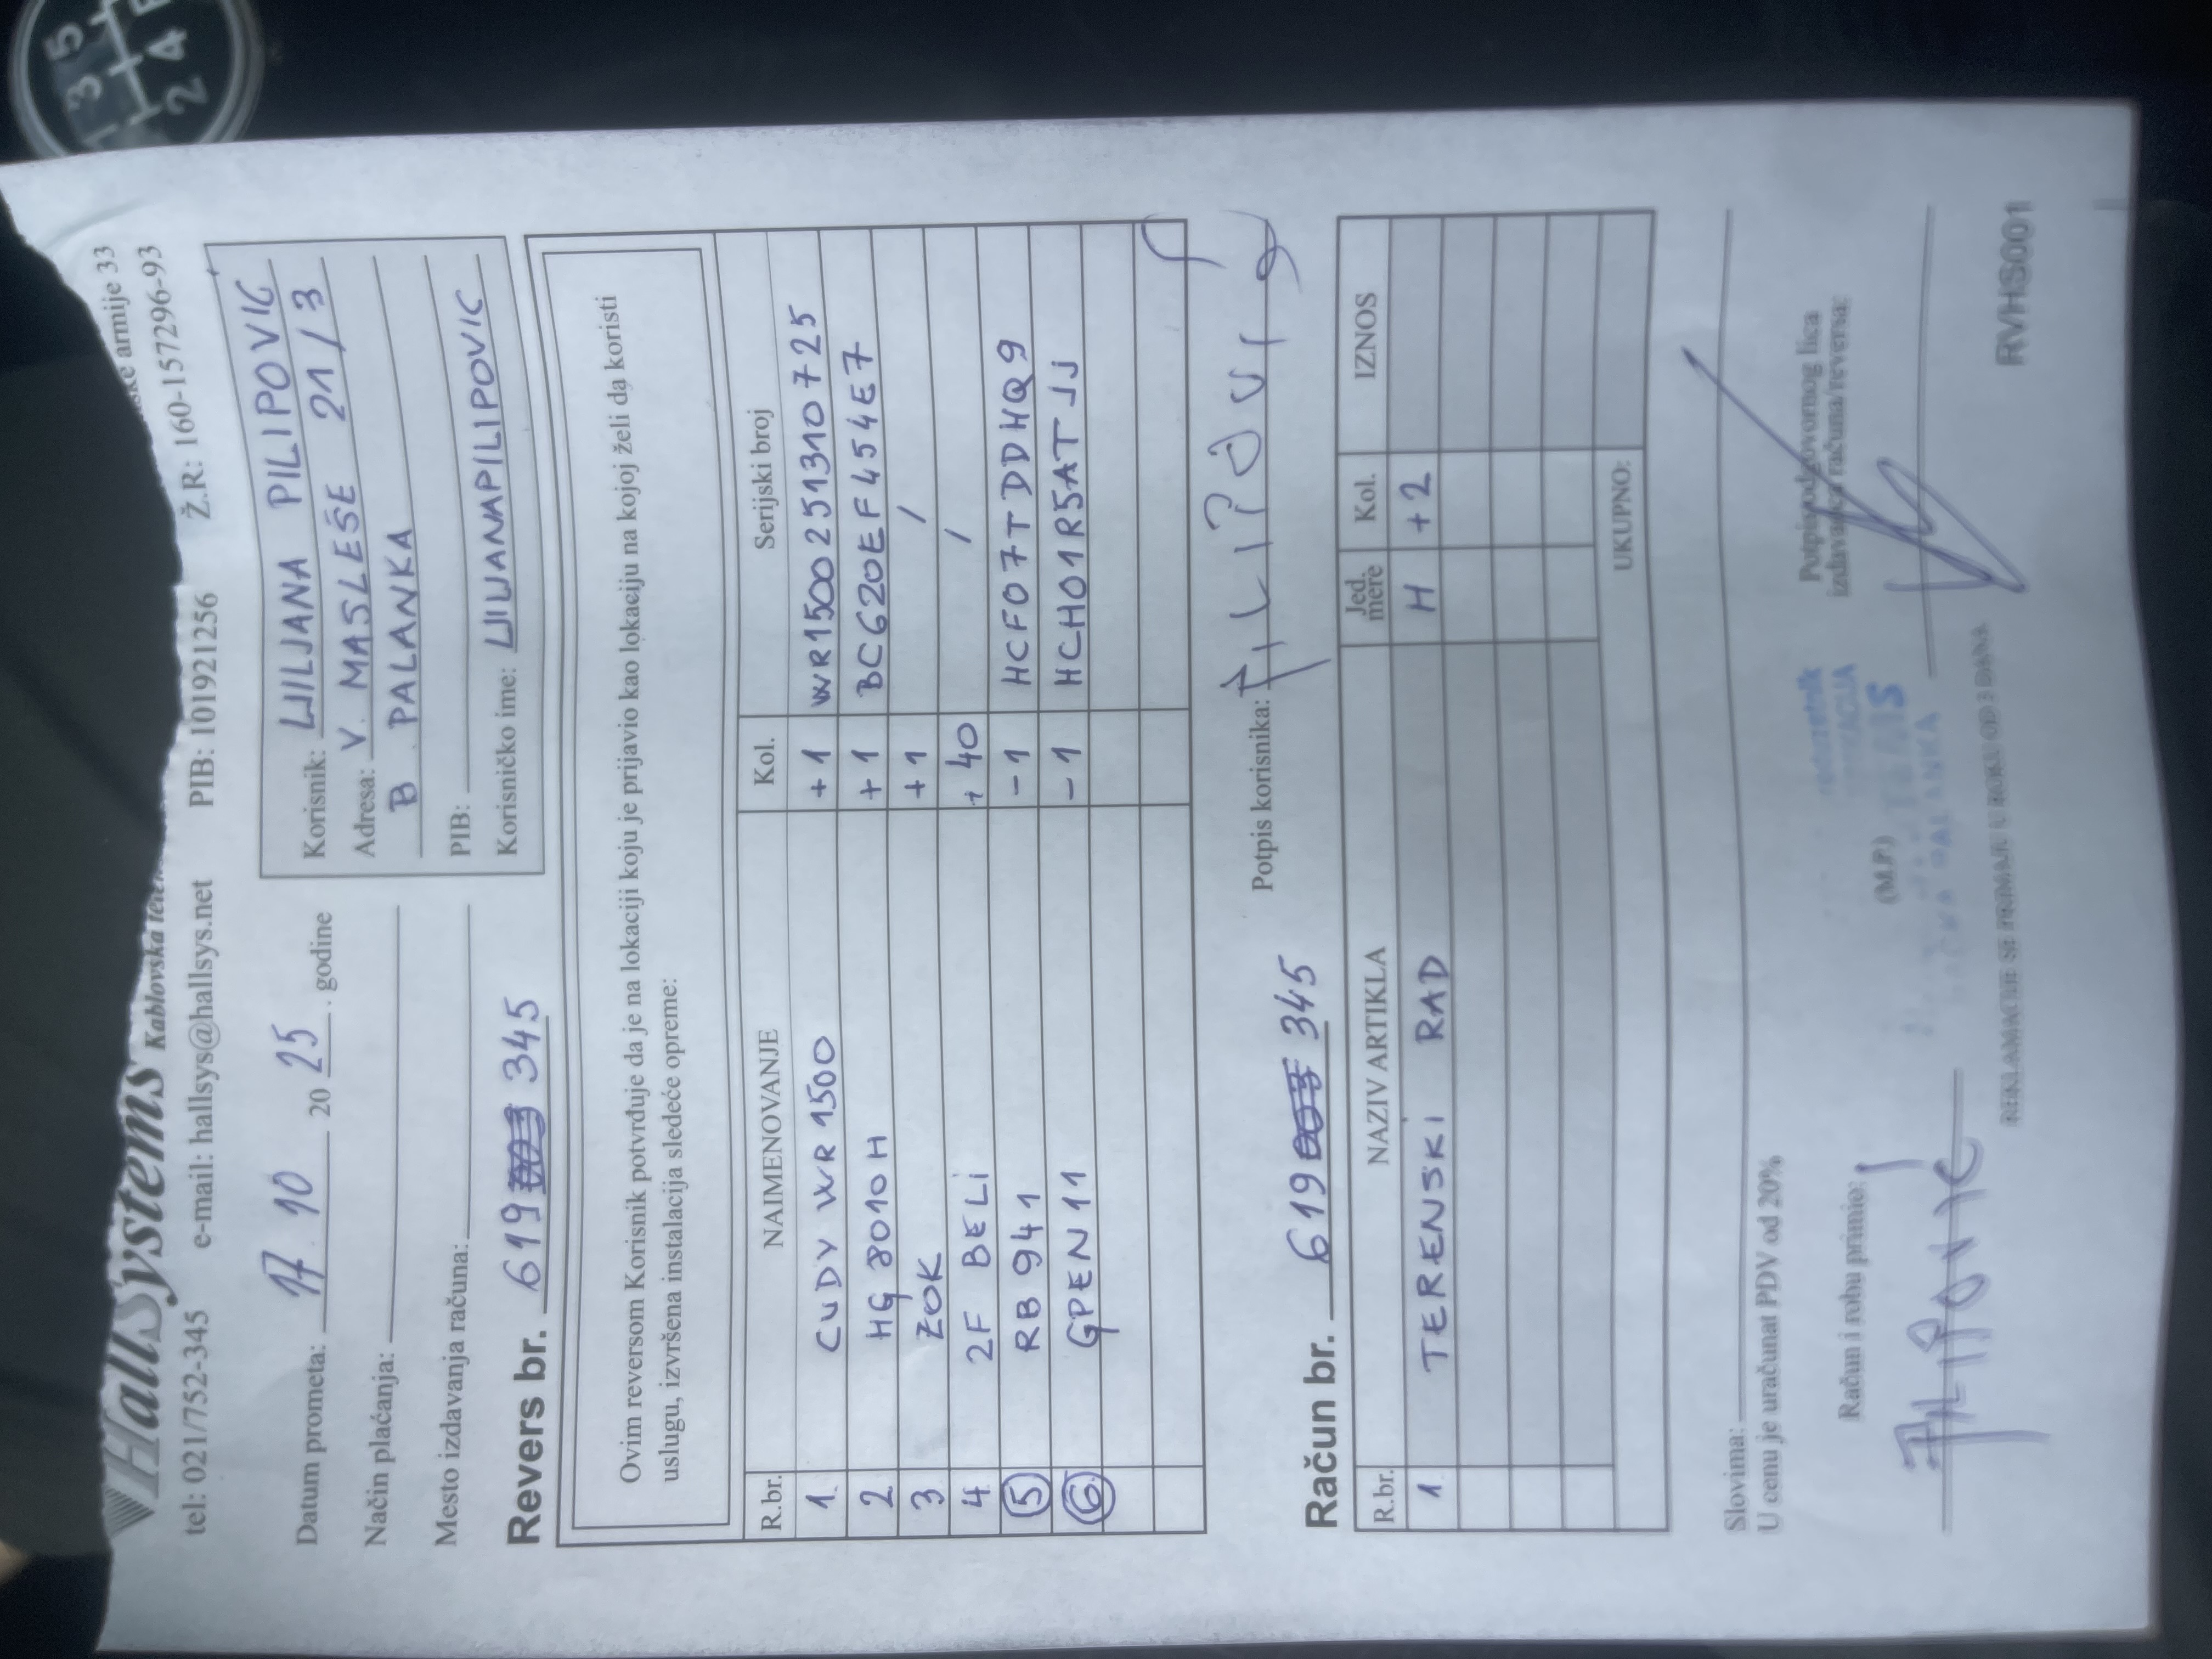 HallSystems Kablovska
ske armije 33
tel: 021/752-345 e-mail: hallsys@hallsys.net PIB: 101921256 Ž.R: 160-157296-93
Datum prometa: 17 10 20 25 . godine
Način plaćanja:
Mesto izdavanja računa:
Korisnik: LJILJANA PILIPOVIĆ
Adresa: V. MASLEŠE 21/3
B PALANKA
PIB:
Korisničko ime: LJILJANAPILIPOVIC
Revers br. 619 345
Ovim reversom Korisnik potvrđuje da je na lokaciji koju je prijavio kao lokaciju na kojoj želi da koristi
uslugu, izvršena instalacija sledeće opreme:
R.br. NAIMENOVANJE Kol. Serijski broj
1. CUDY WR 1500 +1 WR1500251310725
2 HG 8010H +1 BC620EF454E7
3 ZOK +1 /
4 2F BELI + 40 /
5 RB 941 -1 HCF07TDDHQ9
6 GPEN11 -1 HCH01R5ATJJ
Potpis korisnika: PILIPOVIĆ
Račun br. 619 345
R.br. NAZIV ARTIKLA Jed. mere Kol. IZNOS
1 TERENSKI RAD H +2
UKUPNO:
Slovima:
U cenu je uračunat PDV od 20%
Račun i robu primio:
(M.P.)
Potpis odgovornog lica
izdavaoca računa/reversa:
PALANKA
REKLAMACIJE SE PRIMAJU U ROKU OD 3 DANA
RVHS001